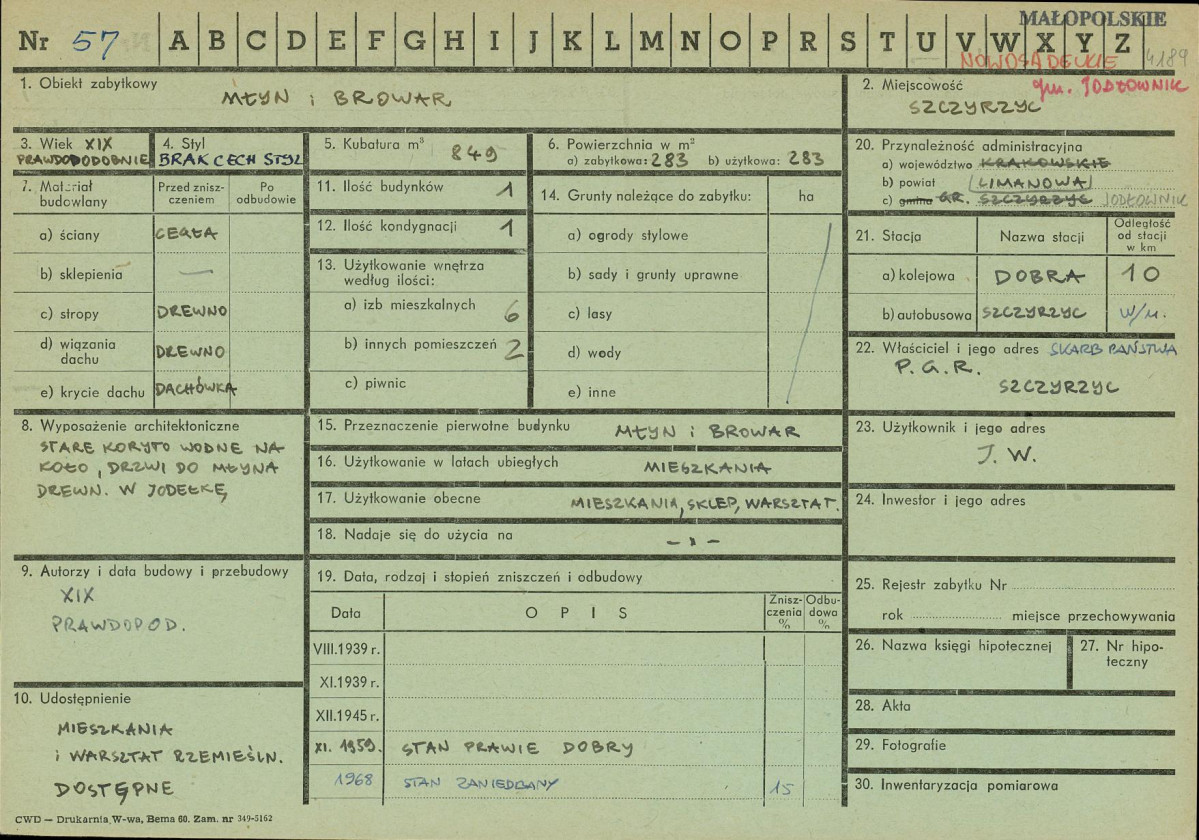 MAŁOPOLSKIE
Nr 57 A B C D E F G H I J K L M N O P R S T U V W X Y Z
NOWOSĄDECKIE 4189
1. Obiekt zabytkowy
MŁYN i BROWAR
2. Miejscowość gm. JODŁOWNIK
SZCZYRZYC
3. Wiek XIX
PRAWDOPODOBNIE
4. Styl
BRAK CECH STYL
5. Kubatura m³ 849
6. Powierzchnia w m²
a) zabytkowa: 283 b) użytkowa: 283
7. Materiał budowlany
Przed zniszczeniem
Po odbudowie
a) ściany CEGŁA
b) sklepienia —
c) stropy DREWNO
d) wiązania dachu DREWNO
e) krycie dachu DACHÓWKA
11. Ilość budynków 1
12. Ilość kondygnacji 1
13. Użytkowanie wnętrza
według ilości:
a) izb mieszkalnych 6
b) innych pomieszczeń 2
c) piwnic
14. Grunty należące do zabytku: ha
a) ogrody stylowe
b) sady i grunty uprawne
c) lasy
d) wody
e) inne
20. Przynależność administracyjna
a) województwo KRAKOWSKIE
b) powiat LIMANOWA
c) gmina GR. SZCZYRZYC JODŁOWNIK
21. Stacja Nazwa stacji Odległość od stacji w km
a) kolejowa DOBRA 10
b) autobusowa SZCZYRZYC w/m.
22. Właściciel i jego adres SKARB PAŃSTWA
P. G. R.
SZCZYRZYC
8. Wyposażenie architektoniczne
STARE KORYTO WODNE NA
KOŁO, DRZWI DO MŁYNA
DREWN. W JODEŁKĘ
15. Przeznaczenie pierwotne budynku MŁYN i BROWAR
16. Użytkowanie w latach ubiegłych MIESZKANIA
17. Użytkowanie obecne MIESZKANIA, SKLEP, WARSZTAT.
18. Nadaje się do użycia na – „ –
23. Użytkownik i jego adres
J. W.
24. Inwestor i jego adres
9. Autorzy i data budowy i przebudowy
XIX
PRAWDOPOD.
19. Data, rodzaj i stopień zniszczeń i odbudowy
Data OPIS Zniszczenia % Odbudowa %
VIII.1939 r.
XI.1939 r.
XII.1945 r.
XI. 1959. STAN PRAWIE DOBRY
1968 STAN ZANIEDBANY 15
25. Rejestr zabytku Nr
rok miejsce przechowywania
26. Nazwa księgi hipotecznej
27. Nr hipoteczny
28. Akta
29. Fotografie
30. Inwentaryzacja pomiarowa
10. Udostępnienie
MIESZKANIA
i WARSZTAT RZEMIEŚLN.
DOSTĘPNE
CWD — Drukarnia, W-wa, Bema 60. Zam. nr 349-5162